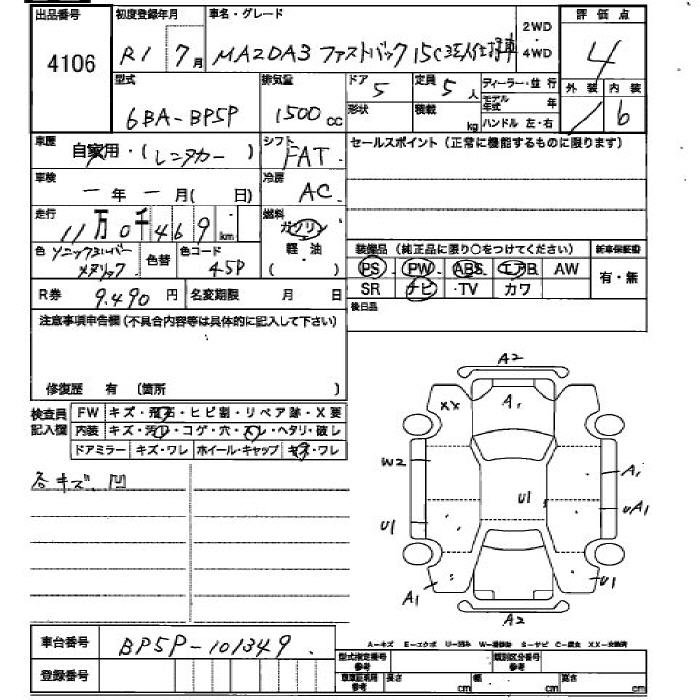 出品番号 初度登録年月 車名・グレード 2WD 評価点
4106 R1 7月 MAZDA3 ファストバック 15C 4WD 4
型式 排気量 ドア 定員 ディーラー・並行 外装 内装
6BA-BP5P 1500cc 5 5人 モデル年式 年
形状 積載 kg ハンドル 左・右 b
車歴 自家用・(レンタカー) シフト FAT セールスポイント(正常に機能するものに限ります)
車検 ー年ー月( 日) 冷房 AC
走行 11万0千469km 燃料 ガソリン
色 ソニックシルバーメタリック 色替 色コード 45P 軽油 ( ) 装備品(純正品に限り○をつけてください) 新車保証書
PS PW ABS エアB AW 有・無
R券 9.490円 名変期限 月 日 SR ナビ・TV カワ
注意事項申告欄(不具合内容等は具体的に記入して下さい) 後日品
修復歴 有 [箇所 ]
検査員 FW キズ・飛石・ヒビ割・リペア跡・X要
記入欄 内装 キズ・汚レ・コゲ・穴・スレ・ヘタリ・破レ
ドアミラー キズ・ワレ ホイール・キャップ キズ・ワレ
各キズ、凹
A2
XX A1
W2 A1
U1 uA1
U1
A1 U1
A2
A-キズ E-エクボ
車台番号 BP5P-101349
登録番号
型式指定番号 参考 類別区分番号 参考
長さ cm 幅 cm 高さ cm